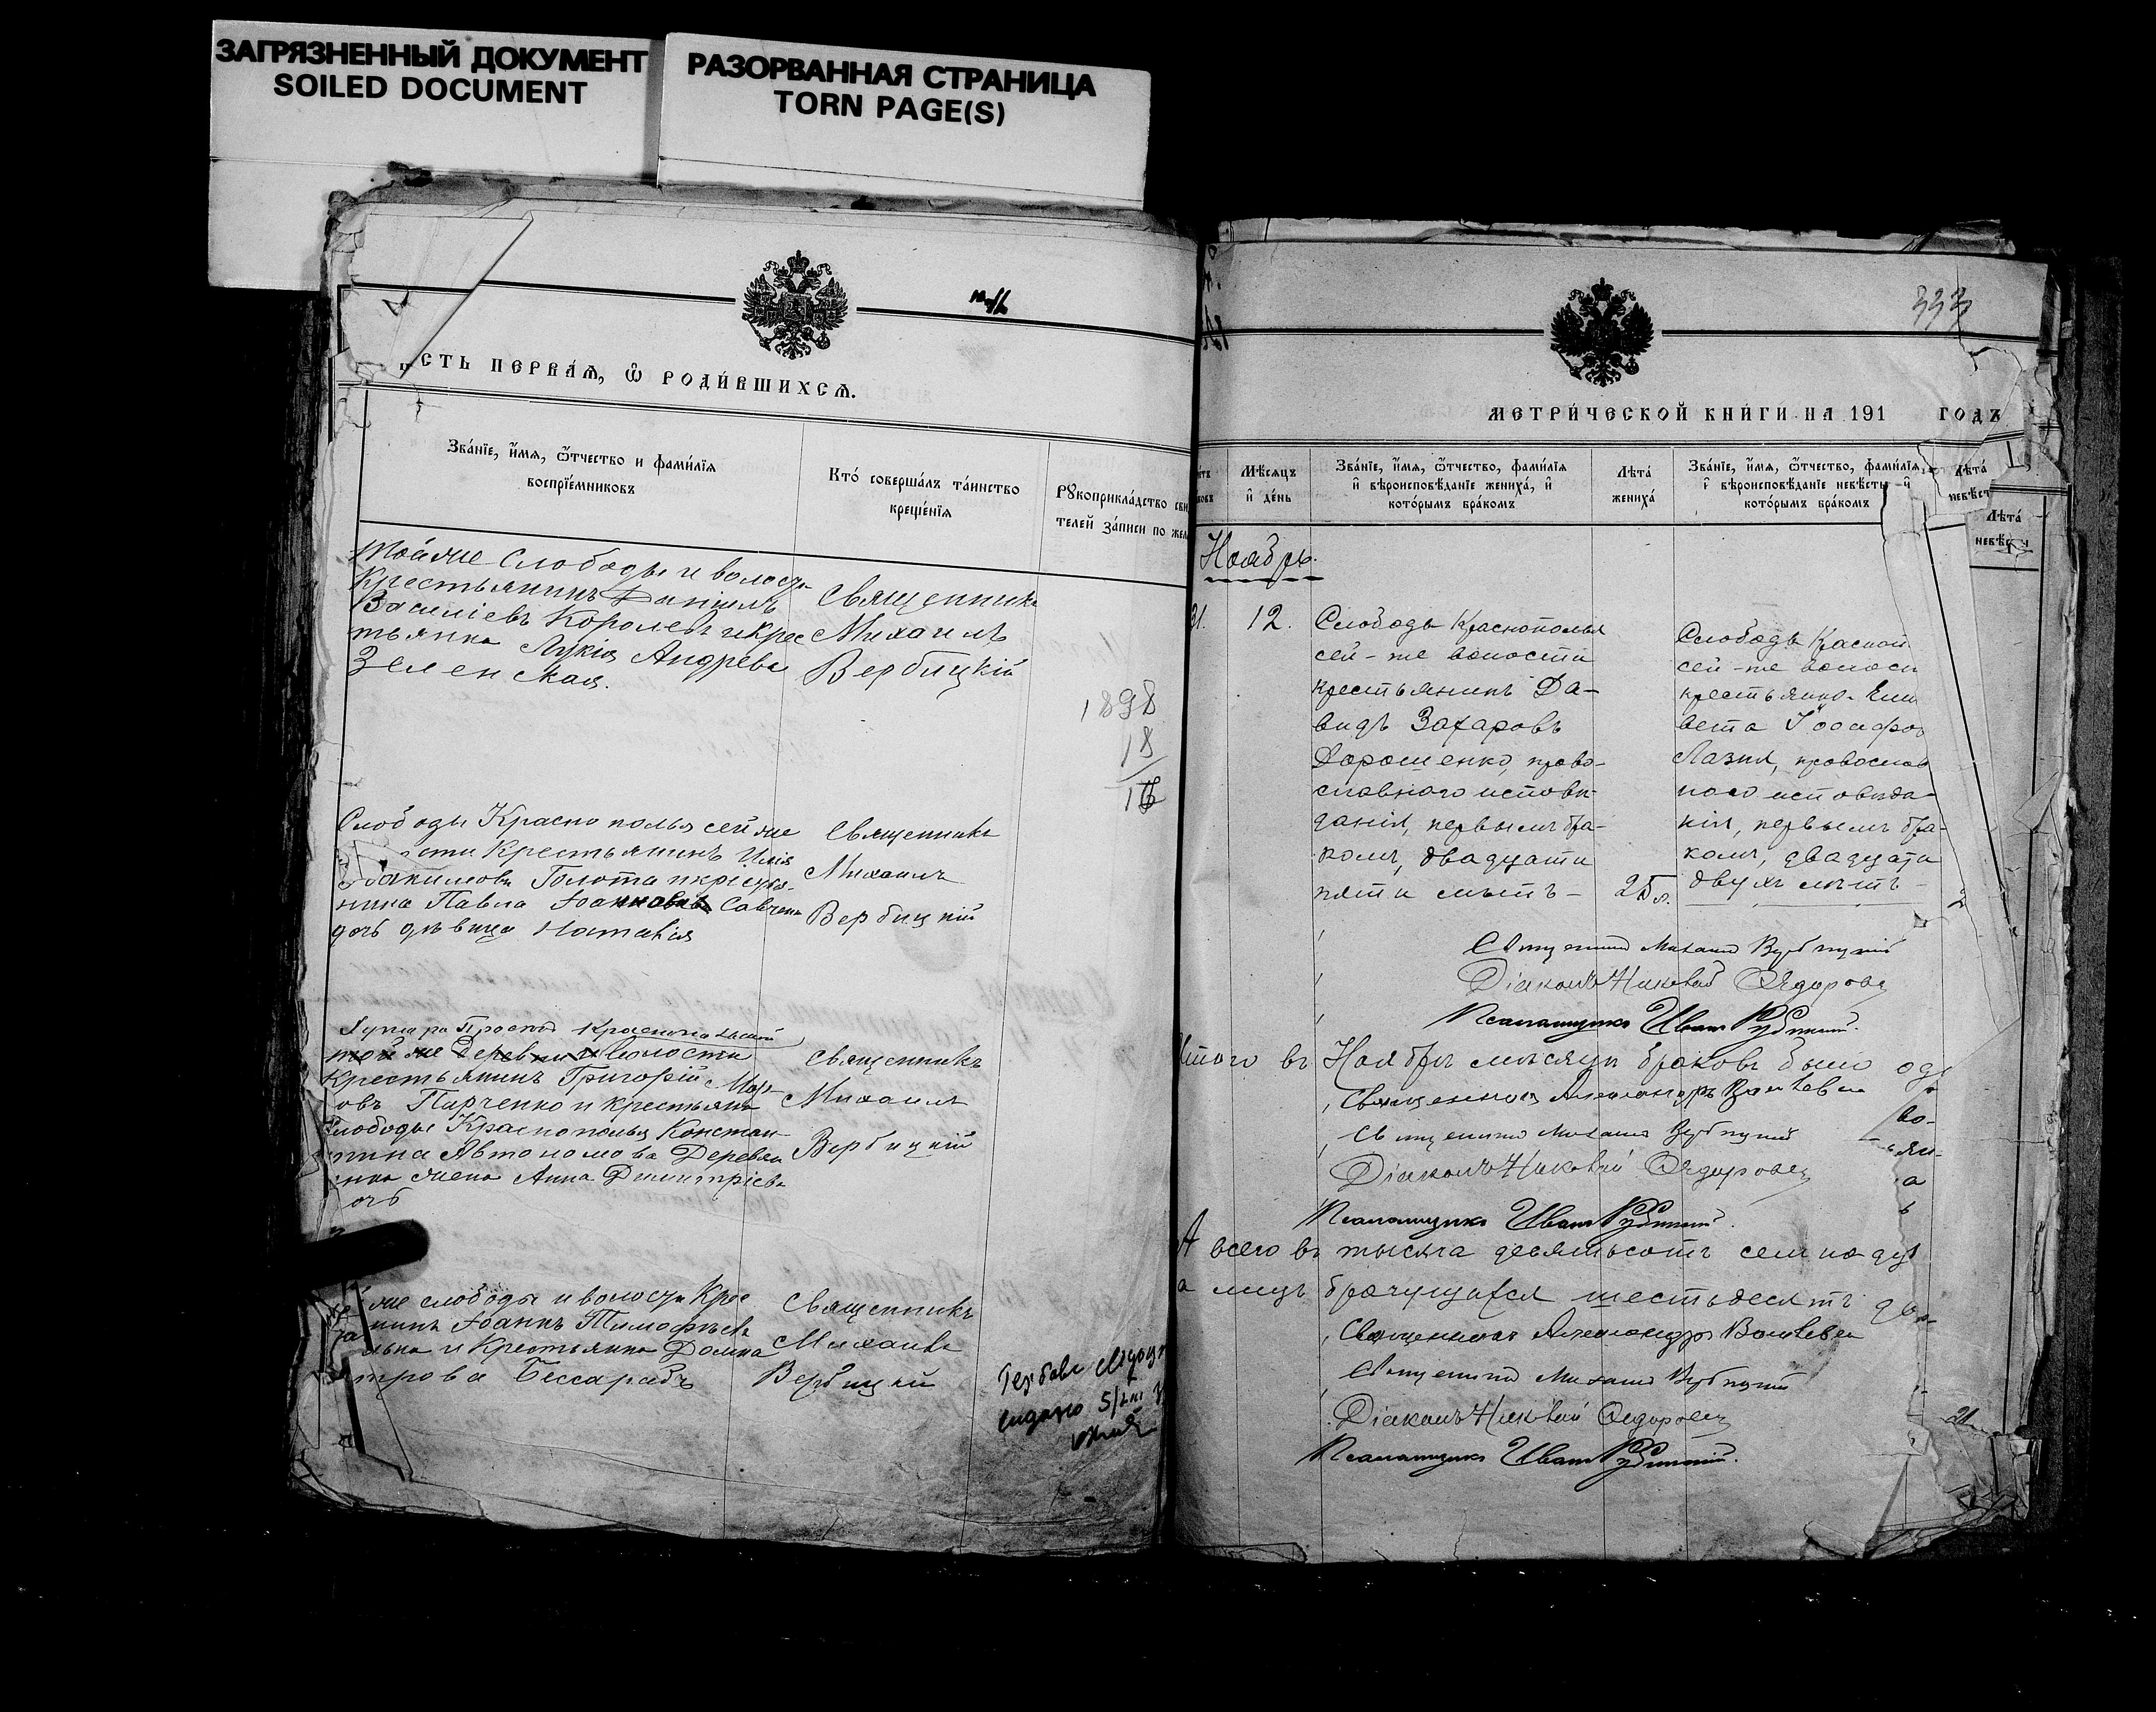 ЗАГРЯЗНЕННЫЙ ДОКУМЕНТ
SOILED DOCUMENT
РАЗОРВАННАЯ СТРАНИЦА
TORN PAGE(S)
СТЬ ПЕРВА́Ѧ, Ѿ РОДИ́ВШИХСѦ.
Зва́нїе, и҆́мѧ, ѻ҆́тчество и фами́лїѧ
воспрїе́мниковъ
Кто́ соверша́лъ та́инство
креще́нїѧ
Рꙋкоприкла́дство сви
телей за́писи по жел
Тойже слободы и волости
Крестьянинъ Данiилъ
Василіевъ Королевъ и крес
тьянка Лукія Андреева
Зеленская.
Священникъ
Михаилъ
Вербицкій
1898
18
16
Слободы Краснополья сейже
сти Крестьянинъ Илія
Голота и крестья-
нина Павла Іоаннова Савченко
дочь дѣвица Наталія
Священникъ
Михаилъ
Вербицкій
Хутора Краснопольской
той же деревни и Волости
Крестьянинъ Григорій Мар
овъ Парченко и крестьян
Слободы Краснополья Констан
тина Автономова Деревян
нко жена Анна Димитріева
очь
Священникъ
Михаилъ
Вербицкій
же слободы и волости Крес
нинъ Іоаннъ Тимофѣев
лька и Крестьянка Домна
трова Бессарабъ
Священникъ
Михаилъ
Вербицкій
333
МЕТРИ́ЧЕСКОЙ КНИ́ГИ НА 191 ГОДЪ
Мѣ́сѧцъ
и҆ де́нь
Зва́нїе, и҆́мѧ, ѻ҆́тчество, фами́лїѧ
и҆ вѣроисповѣ́данїе жениха́, и҆
кото́рымъ бра́комъ
Лѣта́
жениха́
Зва́нїе, и҆́мѧ, ѻ҆́тчество, фами́лїѧ,
и҆ вѣроисповѣ́данїе невѣ́сты и҆
кото́рымъ бра́комъ
Лѣта́
невѣ́ст
Лѣта́
невѣ́с
Ноябрь.
31. 12.
Слободы Краснополья
сей-же волости
крестьянинъ Да-
видъ Захаровъ
Дорошенко, право-
славнаго исповѣ-
данія, первымъ бра-
комъ, двадцати
пяти лѣтъ-
25 л.
Слободы Красноп
сей-же волост
крестьянка Ели
вета Іоасафов
Лазня, православ
наго исповѣда-
нія, первымъ бра-
комъ, двадцати
двухъ лѣтъ-
2
Священникъ Михаилъ Вербицкій
Діаконъ Николай Ѳедоровъ
Псаломщикъ Иванъ Рубинскій.
Итого въ Ноябрѣ мѣсяцѣ браковъ было од
Священникъ Александръ
Священникъ Михаилъ Вербицкій
Діаконъ Николай Ѳедоровъ
Псаломщикъ Иванъ Рубинскій.
А всего въ тысяча девятьсотъ семнадц
а лицъ брачущихся шестьдесятъ два-
Священникъ Александръ
Священникъ Михаилъ Вербицкій
Діаконъ Николай Ѳедоровъ
Псаломщикъ Иванъ Рубинскій.
21